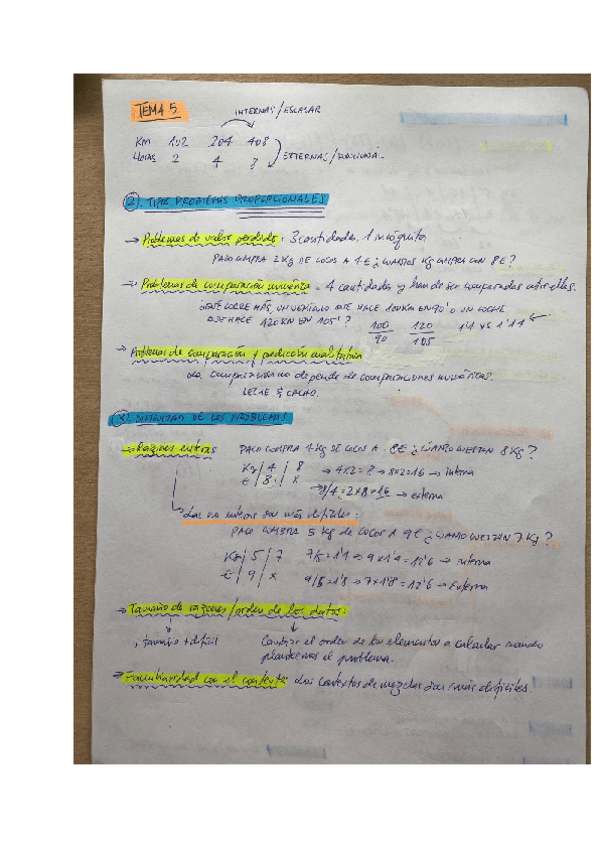 TEMA 5
INTERNAS/ESCALAR
KM 102 204 408
HORAS 2 4 8
EXTERNAS/FUNCIONAL
2). TIPOS PROBLEMAS PROPORCIONALES
→ Problemas de valor perdido: 3 cantidades, 1 incógnita
PACO COMPRA 2 Kg DE COCOS A 4 € ¿CUANTOS Kg COMPRA CON 8€?
→ Problemas de comparación numérica: 4 cantidades y han de ser comparadas entre ellas.
¿QUÉ CORRE MÁS, UN VEHÍCULO QUE HACE 100KM EN 90' O UN COCHE
QUE HACE 120KM EN 105'?
100/90 120/105 1'1 vs 1'14
→ Problemas de comparación y predicción cualitativa
La comparación no depende de comparaciones numéricas.
LECHE Y CACAO.
3). DIFICULTAD DE LOS PROBLEMAS
→ Razones enteras PACO COMPRA 4 Kg DE COCOS A 8€ ¿CUÁNTO CUESTAN 8Kg?
Kg | 4 | 8 → 4x2=8 → 8x2=16 → Interna
€ | 8 | x → 8/4=2x8=16 → externa
Las no enteras son más difíciles:
PACO COMPRA 5 Kg DE COCOS A 9€ ¿CUÁNTO CUESTAN 7Kg?
Kg | 5 | 7 7/5=1'4 → 9x1'4=12'6 → Interna
€ | 9 | x 9/5=1'8 → 7x1'8=12'6 → Externa
→ Tamaño de razones/orden de los datos:
tamaño + difícil Cambiar el orden de los elementos a calcular cuando
planteamos el problema.
→ Familiaridad con el contexto: Los contextos de mezclas son más difíciles.